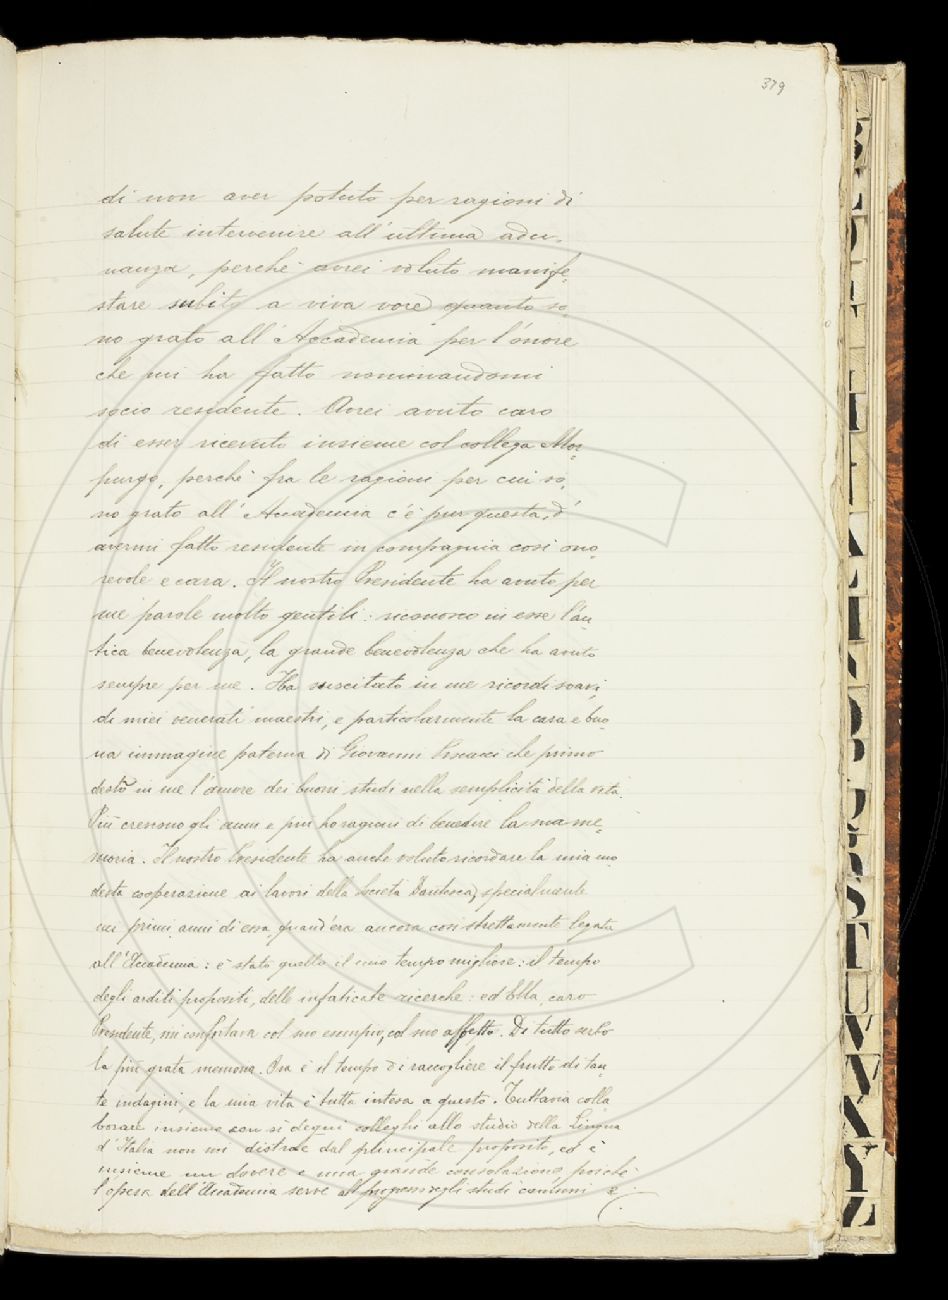 379
di non aver potuto per ragioni di
salute intervenire all'ultima adu-
nanza, perchè avrei voluto manife-
stare subito a viva voce quanto so-
no grato all'Accademia per l'onore
che mi ha fatto nominandomi
socio residente. Avrei avuto caro
di esser ricevuto insieme col collega Mor-
purgo, perchè fra le ragioni per cui so-
no grato all'Accademia c'è pur questa, d'
avermi fatto residente in compagnia così ono-
revole e cara. Il nostro Presidente ha avuto per
me parole molto gentili: riconosco in esse l'an-
tica benevolenza, la grande benevolenza che ha avuto
sempre per me. Ha suscitato in me ricordi soavi,
di miei venerati maestri, e particolarmente la cara e buo-
na immagine paterna di Giovanni che primo
destò in me l'amore dei buoni studi nella semplicità della vita.
Più crescono gli anni e più ho ragioni di benedire la sua me-
moria. Il nostro Presidente ha anche voluto ricordare la mia mo-
desta cooperazione ai lavori della Società Dantesca, specialmente
nei primi anni di essa, quand'era ancora così strettamente legata
all'Accademia: è stato quello il mio tempo migliore: il tempo
degli arditi propositi, delle infaticate ricerche: ed Ella, caro
Presidente, mi confortava col suo esempio, col suo affetto. Di tutto serbo
la più grata memoria. Ora è il tempo di raccogliere il frutto di tan-
te indagini, e la mia vita è tutta intesa a questo. Tuttavia colla-
borare insieme con sì degni colleghi allo studio della Lingua
d'Italia non mi distrae dal principale proposito, ed è
insieme un dovere e una grande consolazione, poichè
l'opera dell'Accademia serve al progresso degli studi comuni e
A B C D E F G H I K L M N O P Q R S T U V X Y Z